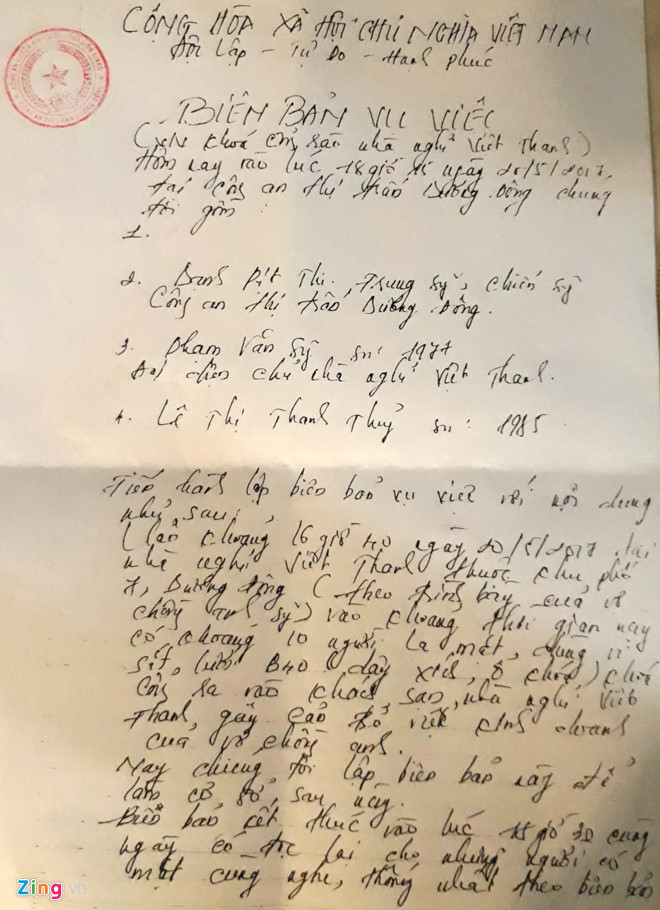 CỘNG HÒA XÃ HỘI CHỦ NGHĨA VIỆT NAM
Độc lập - Tự Do - Hạnh phúc
BIÊN BẢN VỤ VIỆC
(khoá cổng nhà nghỉ Việt Thanh)
Hôm nay vào lúc 18 giờ 15 ngày 20/5/2017,
tại công an thị trấn Dương Đông chúng
tôi gồm:
1.
2. Danh Thi, Trung sỹ, chiến sỹ
Công an thị trấn Dương Đông.
3. Phạm Văn Sỹ sn: 1977
Đại diện chủ nhà nghỉ Việt Thanh.
4. Lê Thị Thanh Thuỷ sn: 1985
Tiến hành lập biên bản vụ việc với nội dung
như sau:
Vào khoảng 16 giờ 40 ngày 20/5/2017 tại
nhà nghỉ Việt Thanh thuộc khu phố
7, Dương Đông (theo trình bày của vợ
chồng anh Sỹ) vào khoảng thời gian này
có khoảng 10 người lạ mặt, dùng
sắt, lưới B40, dây xích, ổ khoá) khoá
cổng ra vào khách sạn, nhà nghỉ Việt
Thanh, gây cản trở việc kinh doanh
của vợ chồng anh.
Nay chúng tôi lập biên bản này để
làm cơ sở sau này.
Biên bản kết thúc vào lúc giờ 30 cùng
ngày có đọc lại cho những người có
mặt cùng nghe, thống nhất theo biên bản
Zing.vn